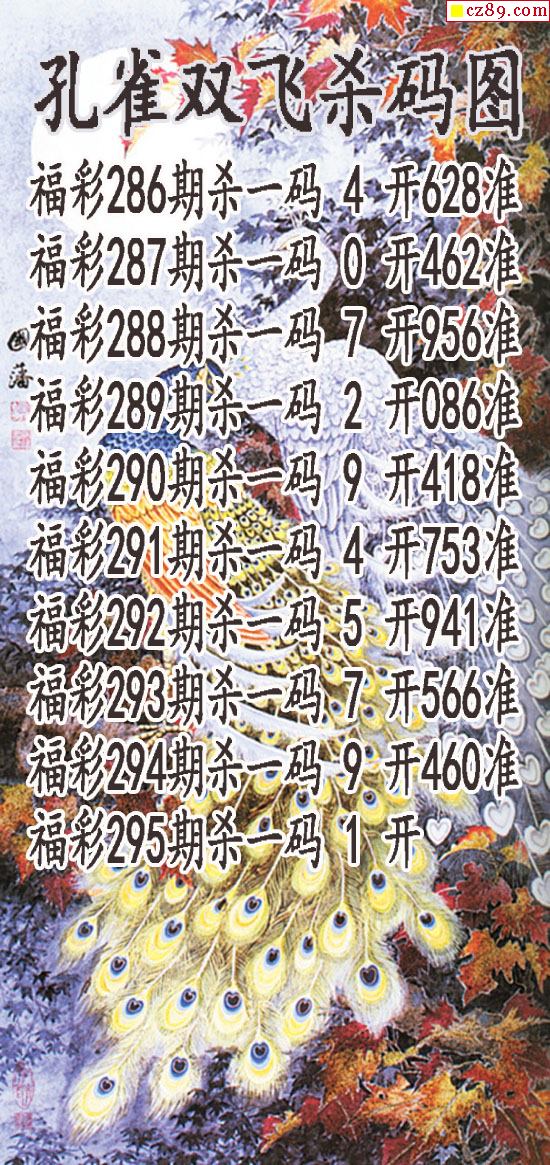 cz89.com
孔雀双飞杀码图
福彩286期杀一码 4 开628准
福彩287期杀一码 0 开462准
福彩288期杀一码 7 开956准
福彩289期杀一码 2 开086准
福彩290期杀一码 9 开418准
福彩291期杀一码 4 开753准
福彩292期杀一码 5 开941准
福彩293期杀一码 7 开566准
福彩294期杀一码 9 开460准
福彩295期杀一码 1 开
國藩